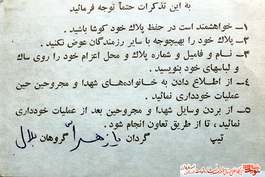 به این تذکرات حتماً توجه فرمائید
۱– خواهشمند است در حفظ پلاك خود كوشا باشید.
۲– پلاك خود را بهیچوجه با سایر رزمندگان عوض نكنید.
۳– نام و فامیل و شماره پلاك و محل اعزام خود را روی ساك و لباسهای خود بنویسید.
۴– از اطلاع دادن به خانواده‌های شهدا و مجروحین حین عملیات خودداری نمائید.
۵– از بردن وسایل شهدا و مجروحین بعد از عملیات خودداری نمائید، تا از طریق تعاون انجام شود.
تیپ گردان یا زهرا گروهان بلال